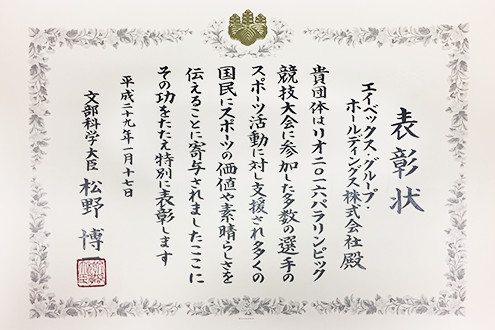 表彰状
エイベックス・グループ・
ホールディングス株式会社 殿
貴団体はリオ二〇一六パラリンピック
競技大会に参加した多数の選手の
スポーツ活動に対し支援され多くの
国民にスポーツの価値や素晴らしさを
伝えることに寄与されましたここに
その功をたたえ特別に表彰します
平成二十九年一月十七日
文部科学大臣 松野 博一